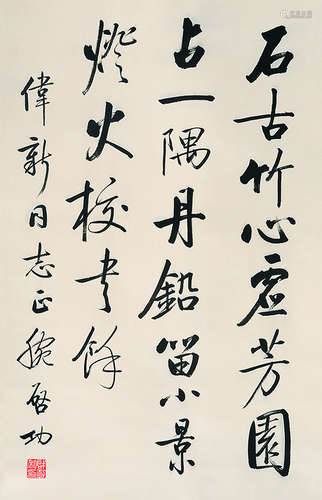 石古竹心虚芳園
占一隅丹鉛留小景
燈火校书餘
偉新同志正腕啓功